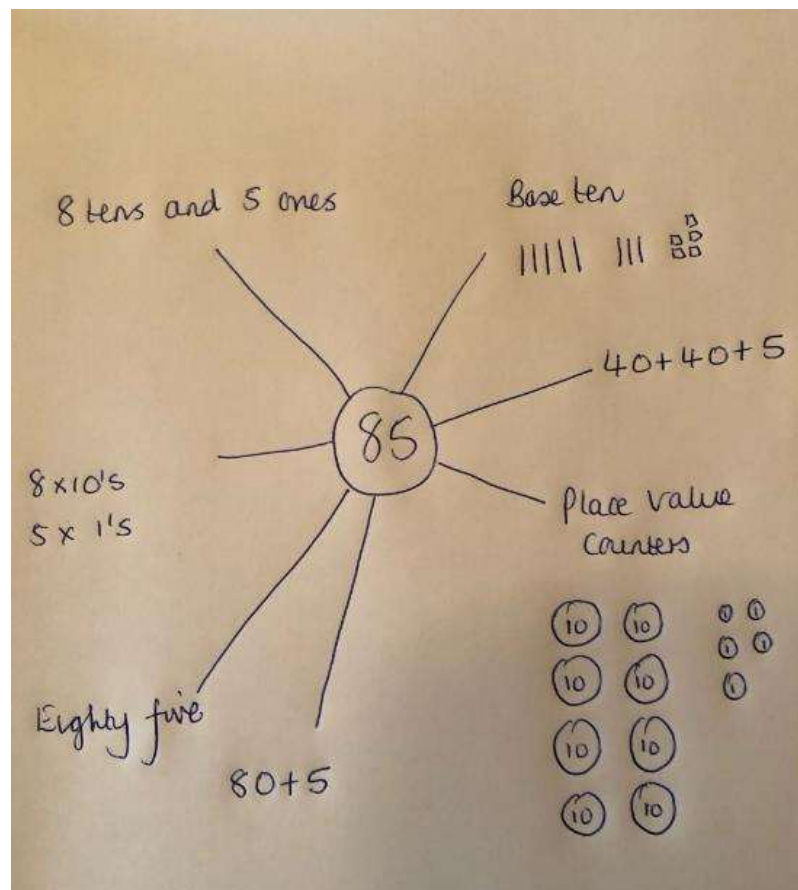 8 tens and 5 ones
Base ten
40+40+5
85
8 x 10's
5 x 1's
Place value
counters
10 10 1 1
10 10 1 1
10 10 1
10 10
Eighty five
80+5